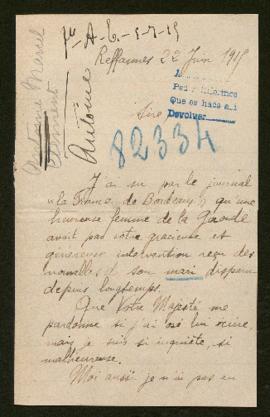 Reffannes 22 Juin 1915
Pedir informes
Que es haca a.i
Devolver
Sire
82334
Antoine
J'ai su par le journal
"la France de Bordeaux" qu'une
heureuse femme de la Gironde
avait par votre gracieuse et
généreuse intervention reçu des
nouvelles de son mari disparu
depuis longtemps.
Que Votre Majesté me
pardonne si j'ai osé lui écrire,
mais je suis si inquiète, si
malheureuse.
Moi aussi je n'ai pas eu